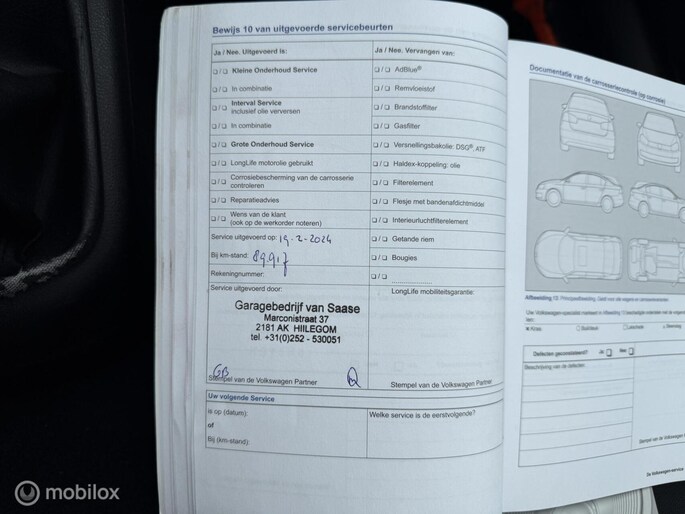 Bewijs 10 van uitgevoerde servicebeurten
Ja / Nee. Uitgevoerd is:
❏ / ❏ Kleine Onderhoud Service
❏ / ❏ In combinatie
❏ / ❏ Interval Service
inclusief olie verversen
❏ / ❏ In combinatie
❏ / ❏ Grote Onderhoud Service
❏ / ❏ LongLife motorolie gebruikt
❏ / ❏ Corrosiebescherming van de carrosserie
controleren
❏ / ❏ Reparatieadvies
❏ / ❏ Wens van de klant
(ook op de werkorder noteren)
Service uitgevoerd op: 19-2-2024
Bij km-stand: 89.917
Rekeningnummer:
Service uitgevoerd door:
Garagebedrijf van Saase
Marconistraat 37
2181 AK HIILEGOM
tel. +31(0)252 - 530051
GB
Stempel van de Volkswagen Partner
Ja / Nee. Vervangen van:
❏ / ❏ AdBlue®
❏ / ❏ Remvloeistof
❏ / ❏ Brandstoffilter
❏ / ❏ Gasfilter
❏ / ❏ Versnellingsbakolie: DSG®, ATF
❏ / ❏ Haldex-koppeling: olie
❏ / ❏ Filterelement
❏ / ❏ Flesje met bandenafdichtmiddel
❏ / ❏ Interieurluchtfilterelement
❏ / ❏ Getande riem
❏ / ❏ Bougies
❏ / ❏
LongLife mobiliteitsgarantie:
Stempel van de Volkswagen Partner
Uw volgende Service
is op (datum):
of
Bij (km-stand):
Welke service is de eerstvolgende?
Documentatie van de carrosseriecontrole (op corrosie)
Defecten geconstateerd? Ja ❏ Nee ❏
Beschrijving van de defecten:
Stempel van de Volkswagen
De Volkswagen-service
mobilox